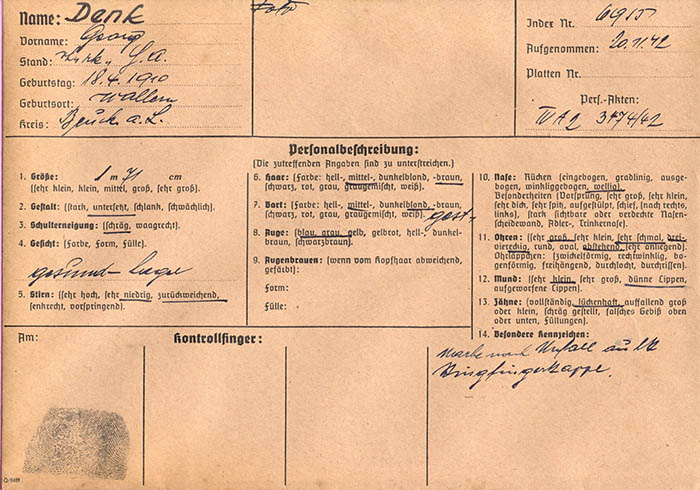 Name: Denk
Vorname: Georg
Stand:
Geburtstag: 18.4.1910
Geburtsort: Wallern
Kreis: Bruck a. L.
Foto
Index Nr.
Aufgenommen: 20.11.42
Platten Nr.
Pers.-Akten:
IV A 2 3174/42
Personalbeschreibung:
(Die zutreffenden Angaben sind zu unterstreichen.)
1. Größe: 1 m 71 cm
(sehr klein, klein, mittel, groß, sehr groß).
2. Gestalt: (stark, untersetzt, schlank, schwächlich).
3. Schulterneigung: (schräg, waagrecht).
4. Gesicht: (Farbe, Form, Fülle).
gesund
5. Stirn: (sehr hoch, sehr niedrig, zurückweichend,
senkrecht, vorspringend).
6. Haar: (Farbe: hell-, mittel-, dunkelblond, -braun,
schwarz, rot, grau, graugemischt, weiß).
7. Bart: (Farbe: hell-, mittel-, dunkelblond, -braun,
schwarz, rot, grau, graugemischt, weiß). gest.
8. Auge: (blau, grau, gelb, gelbrot, hell-, dunkel-
braun, schwarzbraun).
9. Augenbrauen: (wenn vom Kopfhaar abweichend,
gefärbt):
Form:
Fülle:
10. Nase: Rücken (eingebogen, gradlinig, ausge-
bogen, winkliggebogen, wellig).
Besonderheiten (Vorsprung, sehr groß, sehr klein,
sehr dick, sehr spitz, aufgestülpt, schief, (nach rechts,
links), stark sichtbare oder verdeckte Nasen-
scheidewand, Adler-, Trinkernase).
11. Ohren: (sehr groß, sehr klein, sehr schmal, drei-
viereckig, rund, oval, abstehend, sehr anliegend).
Ohrläppchen: (zwickelförmig, rechtwinklig, bo-
genförmig, freihängend, durchlocht, durchrissen).
12. Mund: (sehr klein, sehr groß, dünne Lippen,
aufgeworfene Lippen).
13. Zähne: (vollständig, lückenhaft, auffallend groß
oder klein, schräg gestellt, falsches Gebiß oben
oder unten, Füllungen).
14. Besondere Kennzeichen:
Narbe nach Unfall
Am:
Kontrollfinger: